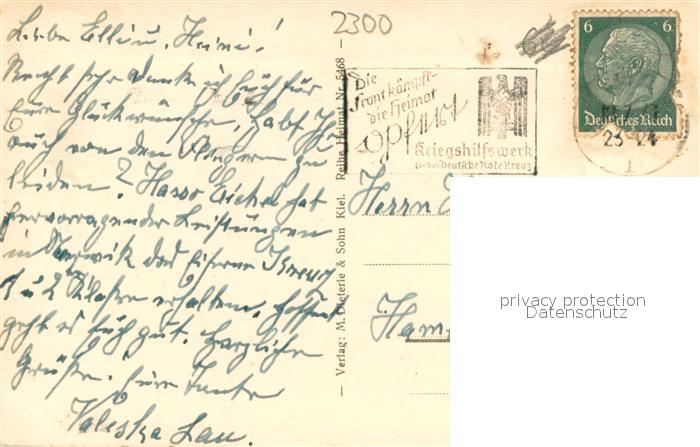 Liebe Elli u. Heini!
Recht sehr danke ich Euch für
Eure Glückwünsche, habt Ihr
auch von den Fliegern zu
leiden? Hasso Eichel hat
hervorragender Leistungen
in das Eiserne Kreuz
1 u 2 Klasse erhalten. Hoffent
geht es Euch gut. Herzliche
Grüße. Eure Tante
Valeska Lau.
2300
Verlag: M. Dieterle & Sohn Kiel. Reihe Heimat Nr. 5468
Die
Front kämpft-
die Heimat
opfert
Kriegshilfswerk
für das Deutsche Rote Kreuz
6 6
Deutsches Reich
23-24
1
Herrn
Ham
privacy protection
Datenschutz